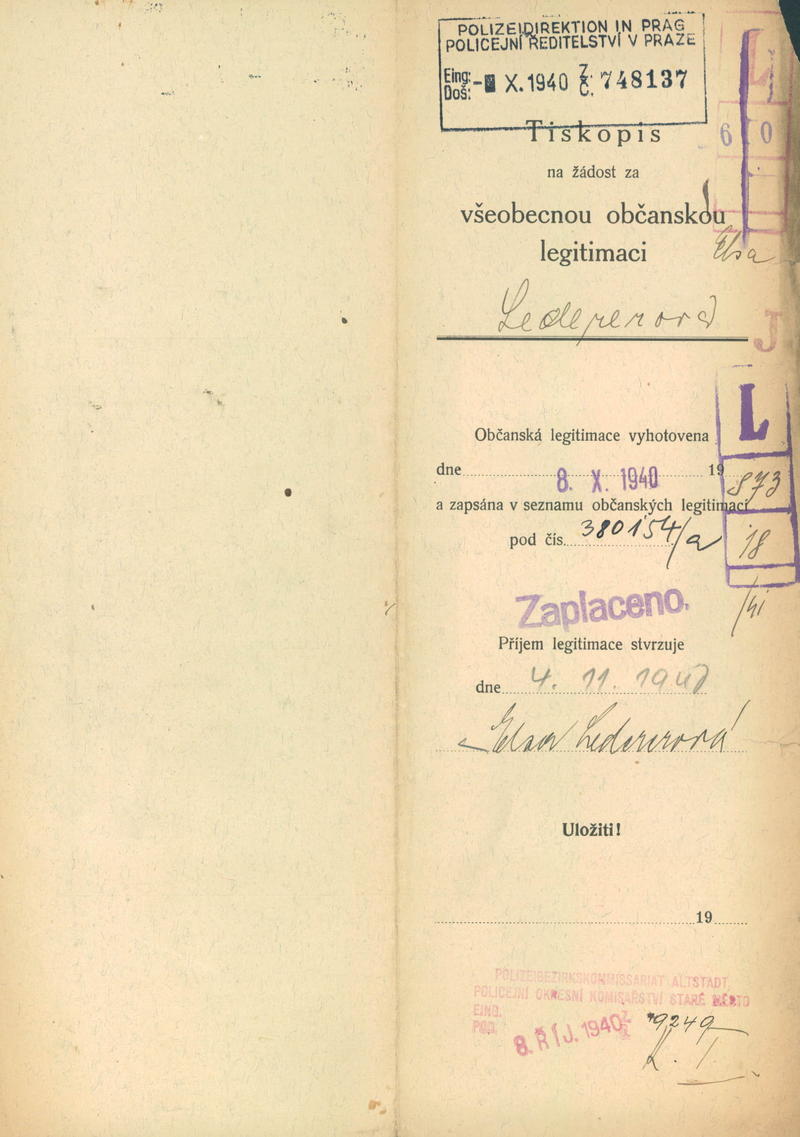 POLIZEIDIREKTION IN PRAG
POLICEJNÍ ŘEDITELSTVÍ V PRAZE
Eing:
Doš: X. 1940 Z. Č. 748137
Tiskopis
6 0
na žádost za
všeobecnou občanskou
legitimaci Elsa
Ledererová
J
L
Občanská legitimace vyhotovena
dne 8. X. 1940 19
873
a zapsána v seznamu občanských legitimací
pod čís. 380154/a
18
/41
Zaplaceno.
Příjem legitimace stvrzuje
dne 4. 11. 1940
Elsa Ledererová
Uložiti!
19
POLIZEIBEZIRKSKOMMISSARIAT ALTSTADT
POLICEJNÍ OKRESNÍ KOMISAŘSTVÍ STARÉ MĚSTO
EING.
8. ŘÍJ. 1940 9249